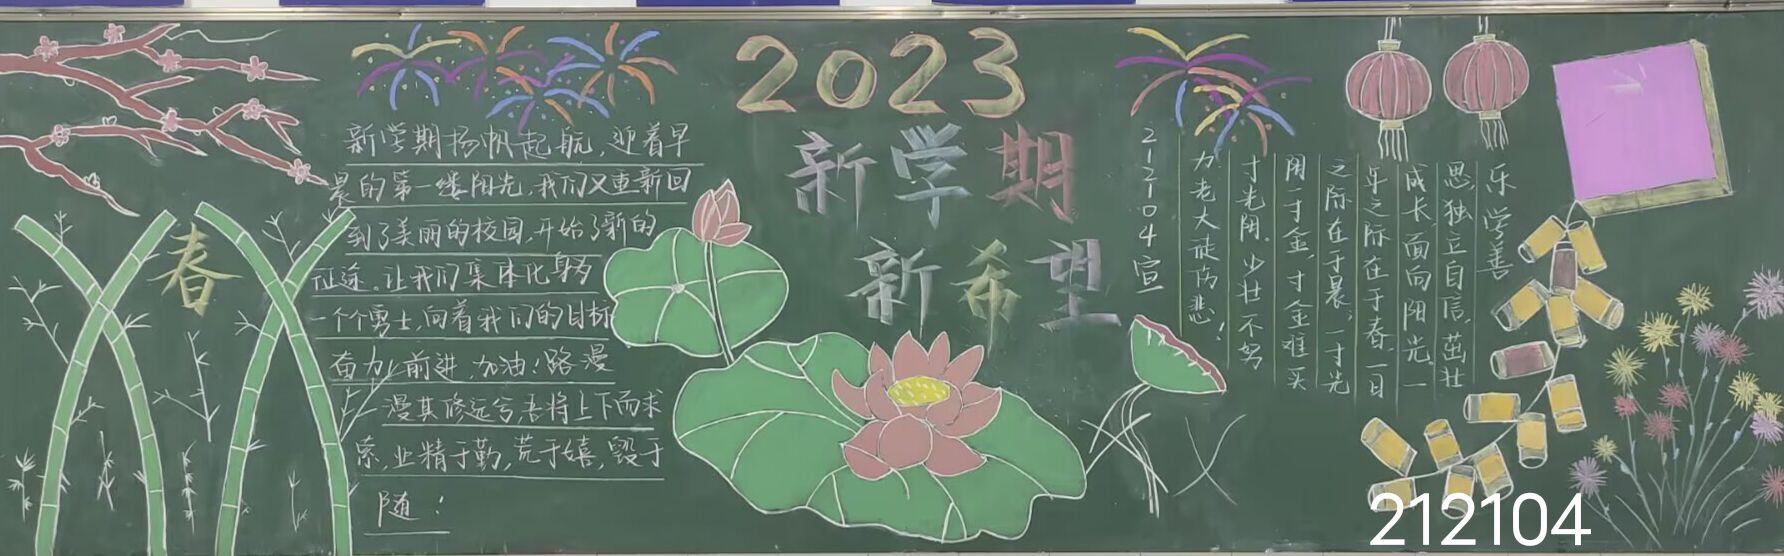 春
新学期扬帆起航,迎着早
晨的第一缕阳光,我们又重新回
到了美丽的校园,开始了新的
征途。让我们集体化身为
一个个勇士,向着我们的目标
奋力前进,加油!路漫
漫其修远兮,吾将上下而求
索,业精于勤,荒于嬉,毁于
随!
2023
新学期
新希望
乐学善
思,独立自信,茁壮
成长,面向阳光,一
年之际在于春,一日
之际在于晨,一寸光
阴一寸金,寸金难买
寸光阴.少壮不努
力老大徒伤悲!
212104宣
212104